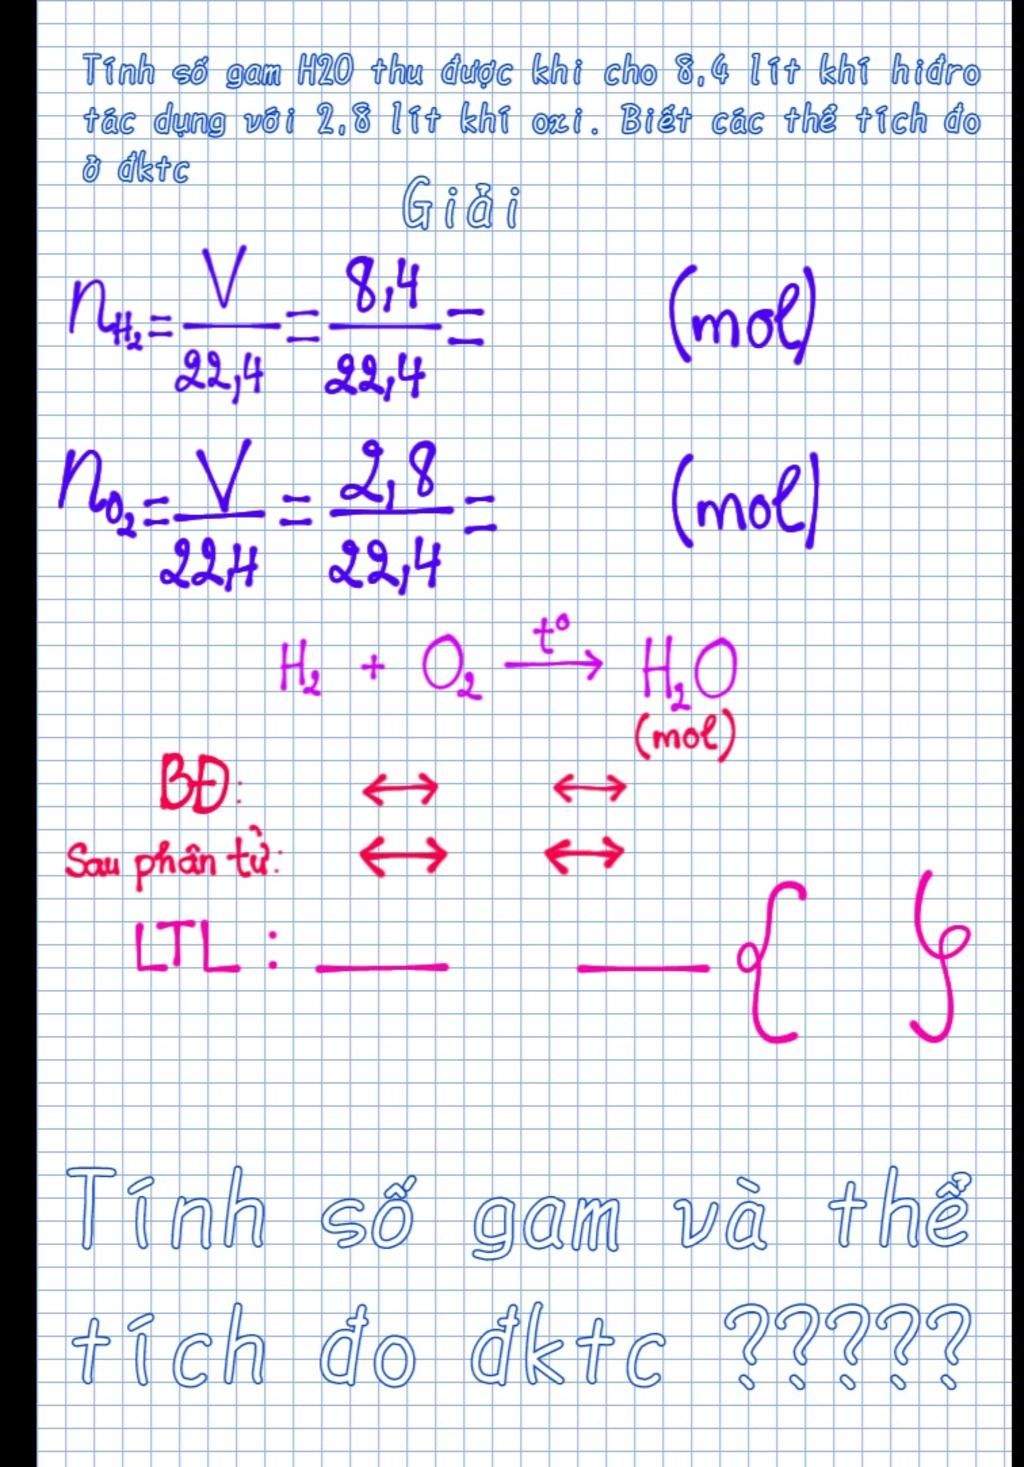 Tính số gam H2O thu được khi cho 8,4 lít khí hiđro
tác dụng với 2,8 lít khí oxi. Biết các thể tích đo
ở đktc
Giải
n_H₂ = V/22,4 = 8,4/22,4 = (mol)
n_O₂ = V/22,4 = 2,8/22,4 = (mol)
H₂ + O₂ —t⁰→ H₂O
(mol)
BĐ: ↔ ↔
Sau phân tử: ↔ ↔
LTL : ___ ___ { }
Tính số gam và thể
tích đo đktc ?????